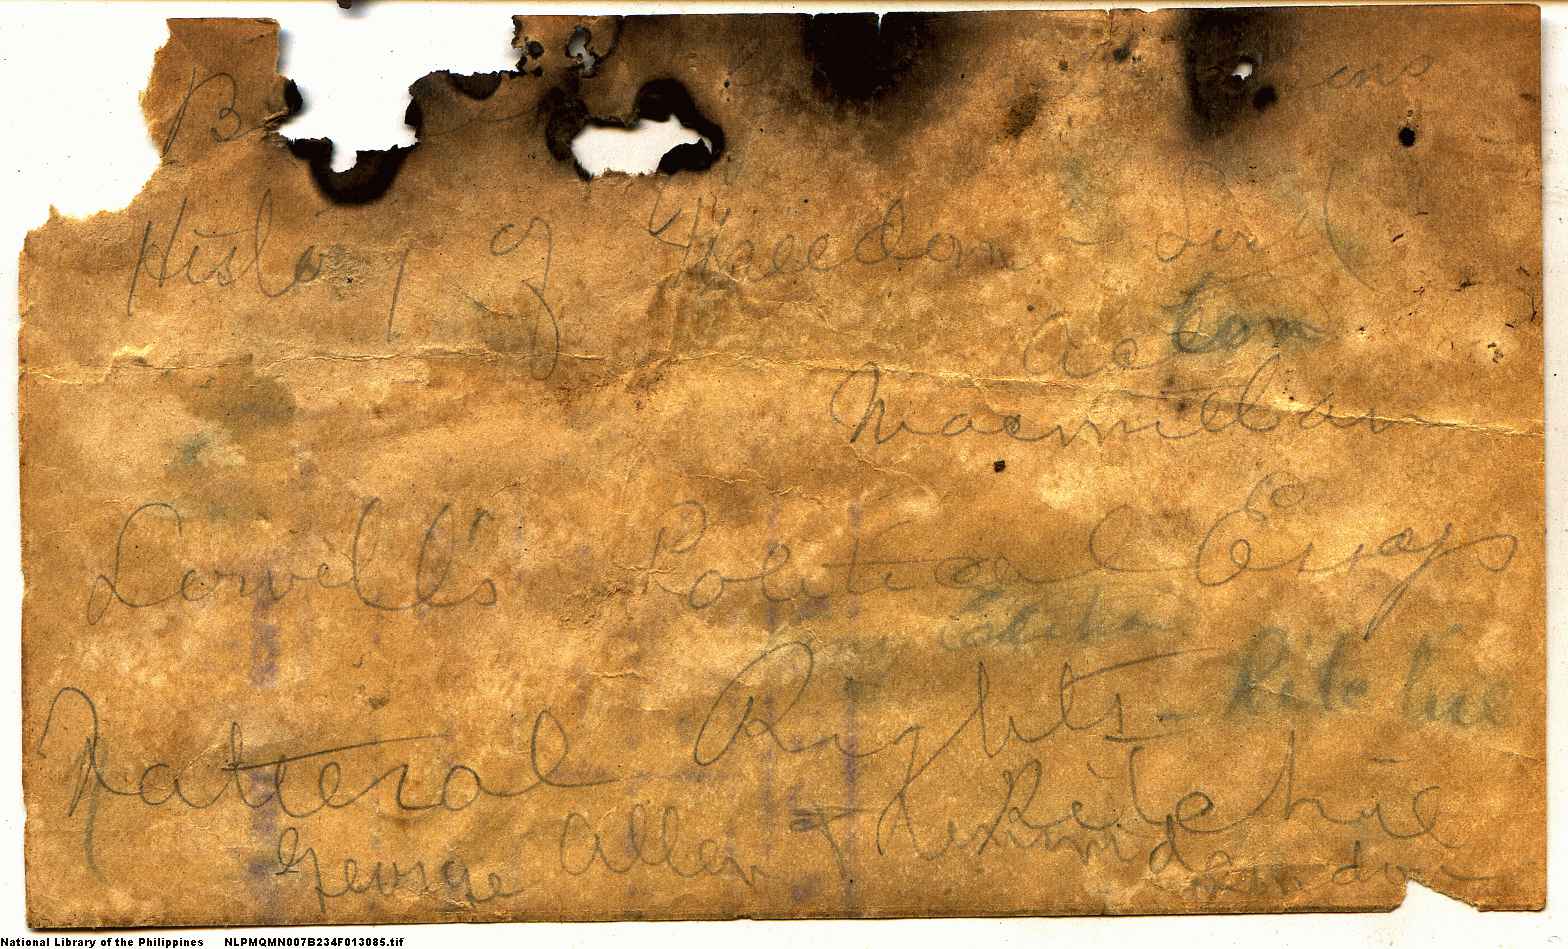 History of Freedom - Lord
Acton
Macmillan
Lowell's Political Essays
Ritchie
Natural Rights -
Ritchie
George Allen &
London
National Library of the Philippines NLPMQMN007B234F013085.tif